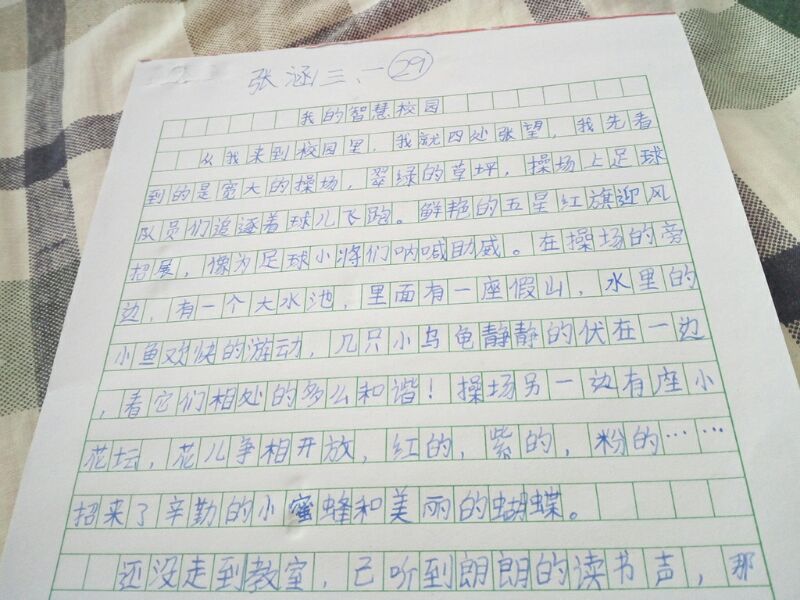 张涵三、一 29
我的智慧校园
从我来到校园里，我就四处张望，我先看
到的是宽大的操场，翠绿的草坪，操场上足球
队员们追逐着球儿飞跑。鲜艳的五星红旗迎风
招展，像为足球小将们呐喊助威。在操场的旁
边，有一个大水池，里面有一座假山，水里的
小鱼欢快的游动，几只小乌龟静静的伏在一边
，看它们相处的多么和谐！操场另一边有座小
花坛，花儿争相开放，红的，紫的，粉的……
招来了辛勤的小蜜蜂和美丽的蝴蝶。
还没走到教室，已听到朗朗的读书声，那